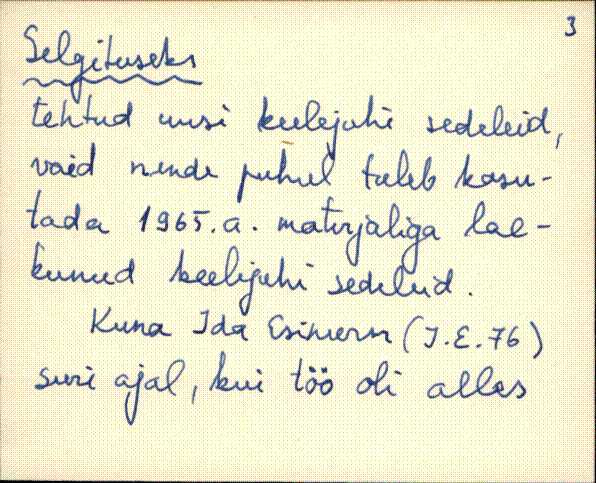 3
Selgituseks
tehtud uusi keelejuhi sedeleid,
vaid nende puhul tuleb kasu-
tada 1965.a. materjaliga lae-
kunud keelejuhi sedeleid.
Kuna Ida Esimerm (I.E. 76)
suri ajal, kui töö oli alles